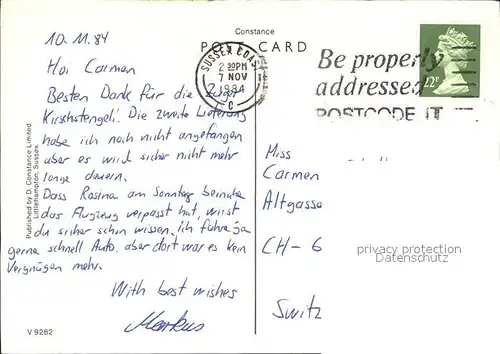 Constance
POST CARD
10.11.84
Hoi Carmen
Besten Dank für die Zuger
Kirschstengeli. Die zweite Lieferung
habe ich noch nicht angefangen
aber es wird sicher nicht mehr
lange dauern.
Dass Rosina am Sonntag beinahe
das Flugzeug verpasst hat, wirst
du sicher schon wissen. Ich fahre ja
gerne schnell Auto, aber dort war es kein
Vergnügen mehr.
With best wishes
Markus
Published by D. Constance Limited
Littlehampton, Sussex.
V 9282
SUSSEX COAST
2 30PM
7 NOV
1984
C
Be properly
addressed
POSTCODE IT
22P
Miss
Carmen
Altgasse
CH-6
Switz
privacy protection
Datenschutz